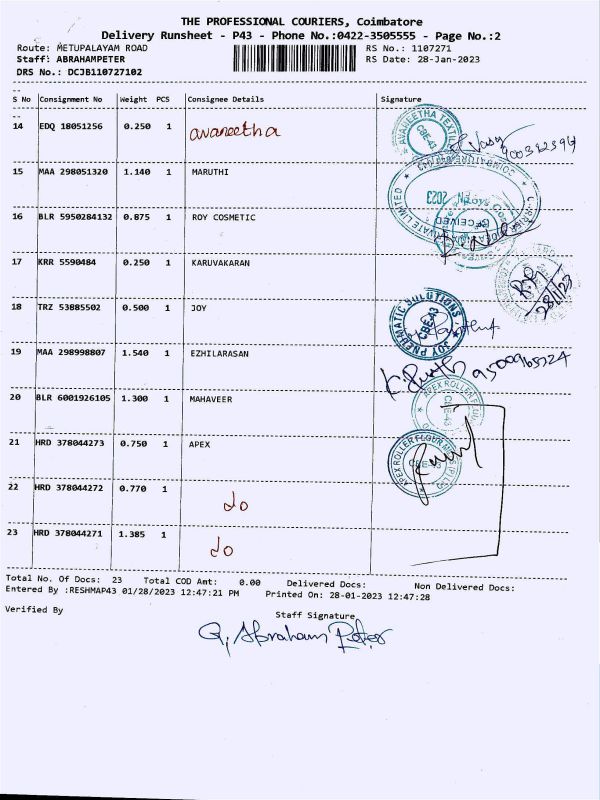 THE PROFESSIONAL COURIERS, Coimbatore
Delivery Runsheet - P43 - Phone No.:0422-3505555 - Page No.:2
Route: METUPALAYAM ROAD RS No.: 1107271
Staff: ABRAHAMPETER RS Date: 28-Jan-2023
DRS No.: DCJB110727102
S No Consignment No Weight PCS Consignee Details Signature
14 EDQ 18051256 0.250 1 avaneetha
AVANEETHA TEXTIL
CBE-43
15 MAA 298051320 1.140 1 MARUTHI
PRIVATE LIMITED
2023
RECEIVED
16 BLR 5950284132 0.875 1 ROY COSMETIC
17 KRR 5590484 0.250 1 KARUVAKARAN
28/1/23
18 TRZ 53885502 0.500 1 JOY
JOY PNEUMATIC SOLUTIONS
CBE-43
19 MAA 298998807 1.540 1 EZHILARASAN
20 BLR 6001926105 1.300 1 MAHAVEER
APEX ROLLER FLOUR
CBE-43
21 HRD 378044273 0.750 1 APEX
APEX ROLLER FLOUR MILLS (P) LTD
CBE-43
22 HRD 378044272 0.770 1 do
23 HRD 378044271 1.385 1 do
Total No. Of Docs: 23 Total COD Amt: 0.00 Delivered Docs: Non Delivered Docs:
Entered By :RESHMAP43 01/28/2023 12:47:21 PM Printed On: 28-01-2023 12:47:28
Verified By Staff Signature
G. Abraham Peter